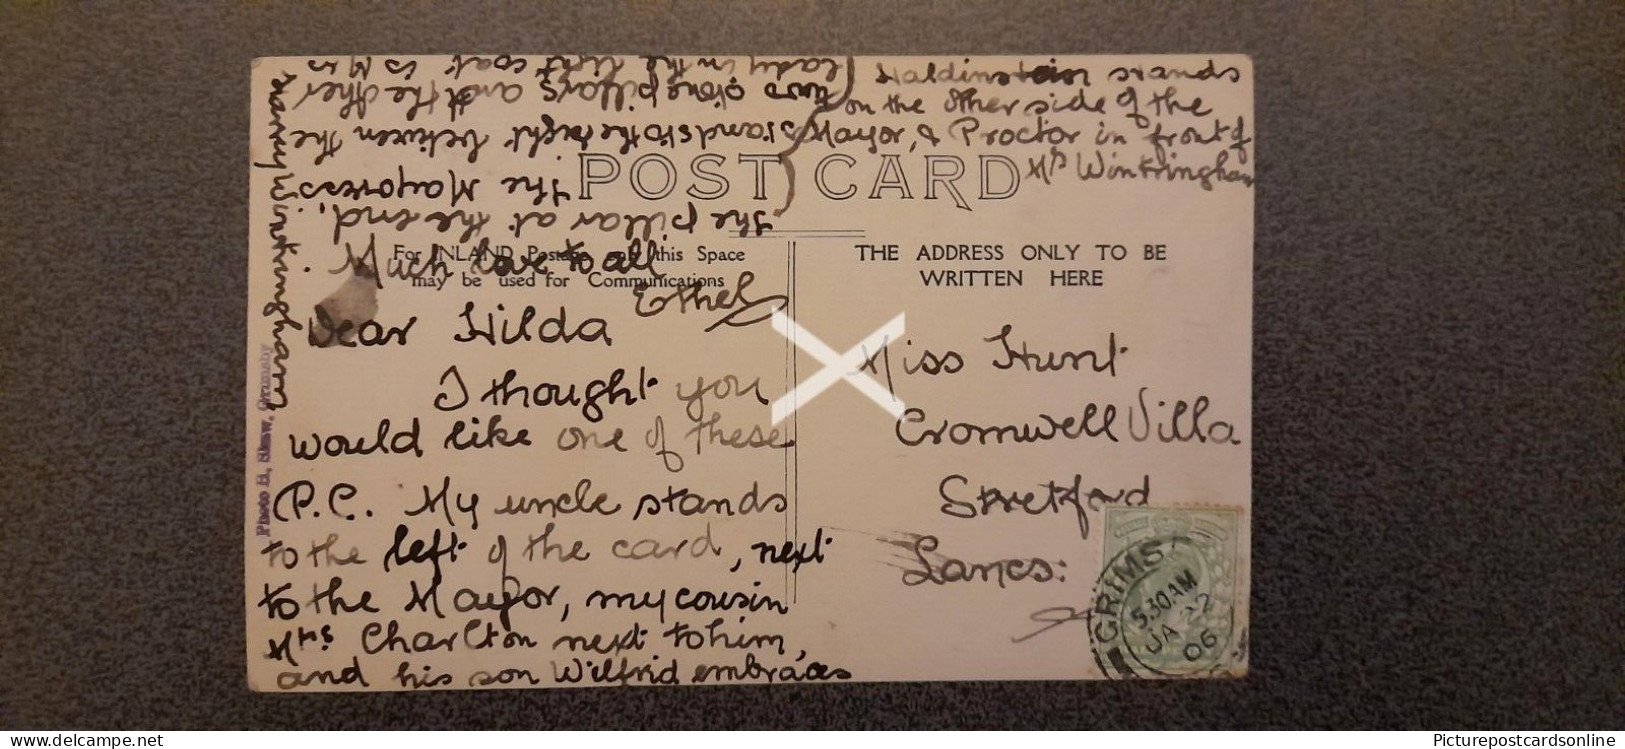 Dear Hilda
I thought you
would like one of these
P.C. My uncle stands
to the left of the card, next
to the Mayor, my cousin
Mrs Charlton next to him,
and his son Wilfrid embraces
the pillar at the end,
The Mayoress
stands to the right between the
two stone pillars and the other
lady in the light coat is Mrs
Haldinstein stands
on the other side of the
Mayor, & Proctor in front of
Mrs Wintringham
Harry Wintringham
Much love to all
Ethel
POST CARD
For INLAND Postage only this Space
may be used for Communications
THE ADDRESS ONLY TO BE
WRITTEN HERE
Miss Hunt
Cromwell Villa
Stretford
Lancs:
GRIMSBY
5.30AM
JA 22
06
Photo H. Shaw, Grimsby
www.delcampe.net
Picturepostcardsonline